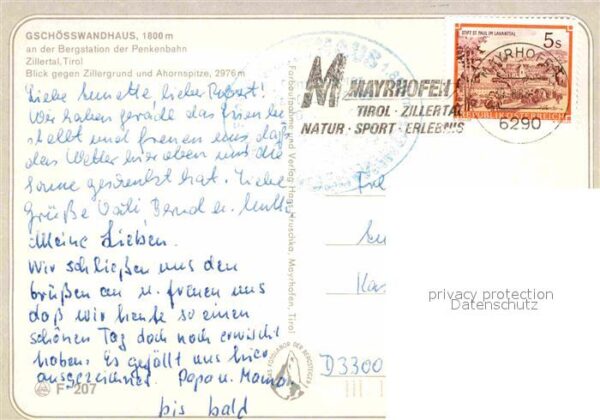 GSCHÖSSWANDHAUS, 1800 m
an der Bergstation der Penkenbahn
Zillertal, Tirol
Blick gegen Zillergrund und Ahornspitze, 2976 m
Liebe lieber Robert!
Wir haben gerade das
und freuen uns daß
das Wetter hier oben und die
Sonne hat. Liebe
Grüße Vati, Bernd u. Mutti
Meine Lieben.
Wir schließen uns den
Grüßen an u. freuen uns
daß wir heute so einen
schönen Tag doch noch erwischt
haben. Es gefällt uns hier
ausgezeichnet. Papa u. Mama
bis bald
F 207
Farbaufnahme und Verlag Hans Hruschka, Mayrhofen, Tirol
M MAYRHOFEN
TIROL · ZILLERTAL
NATUR · SPORT · ERLEBNIS
STIFT ST. PAUL IM LAVANTTAL
5s
REPUBLIK ÖSTERREICH
MAYRHOF
6290
D3300
privacy protection
Datenschutz